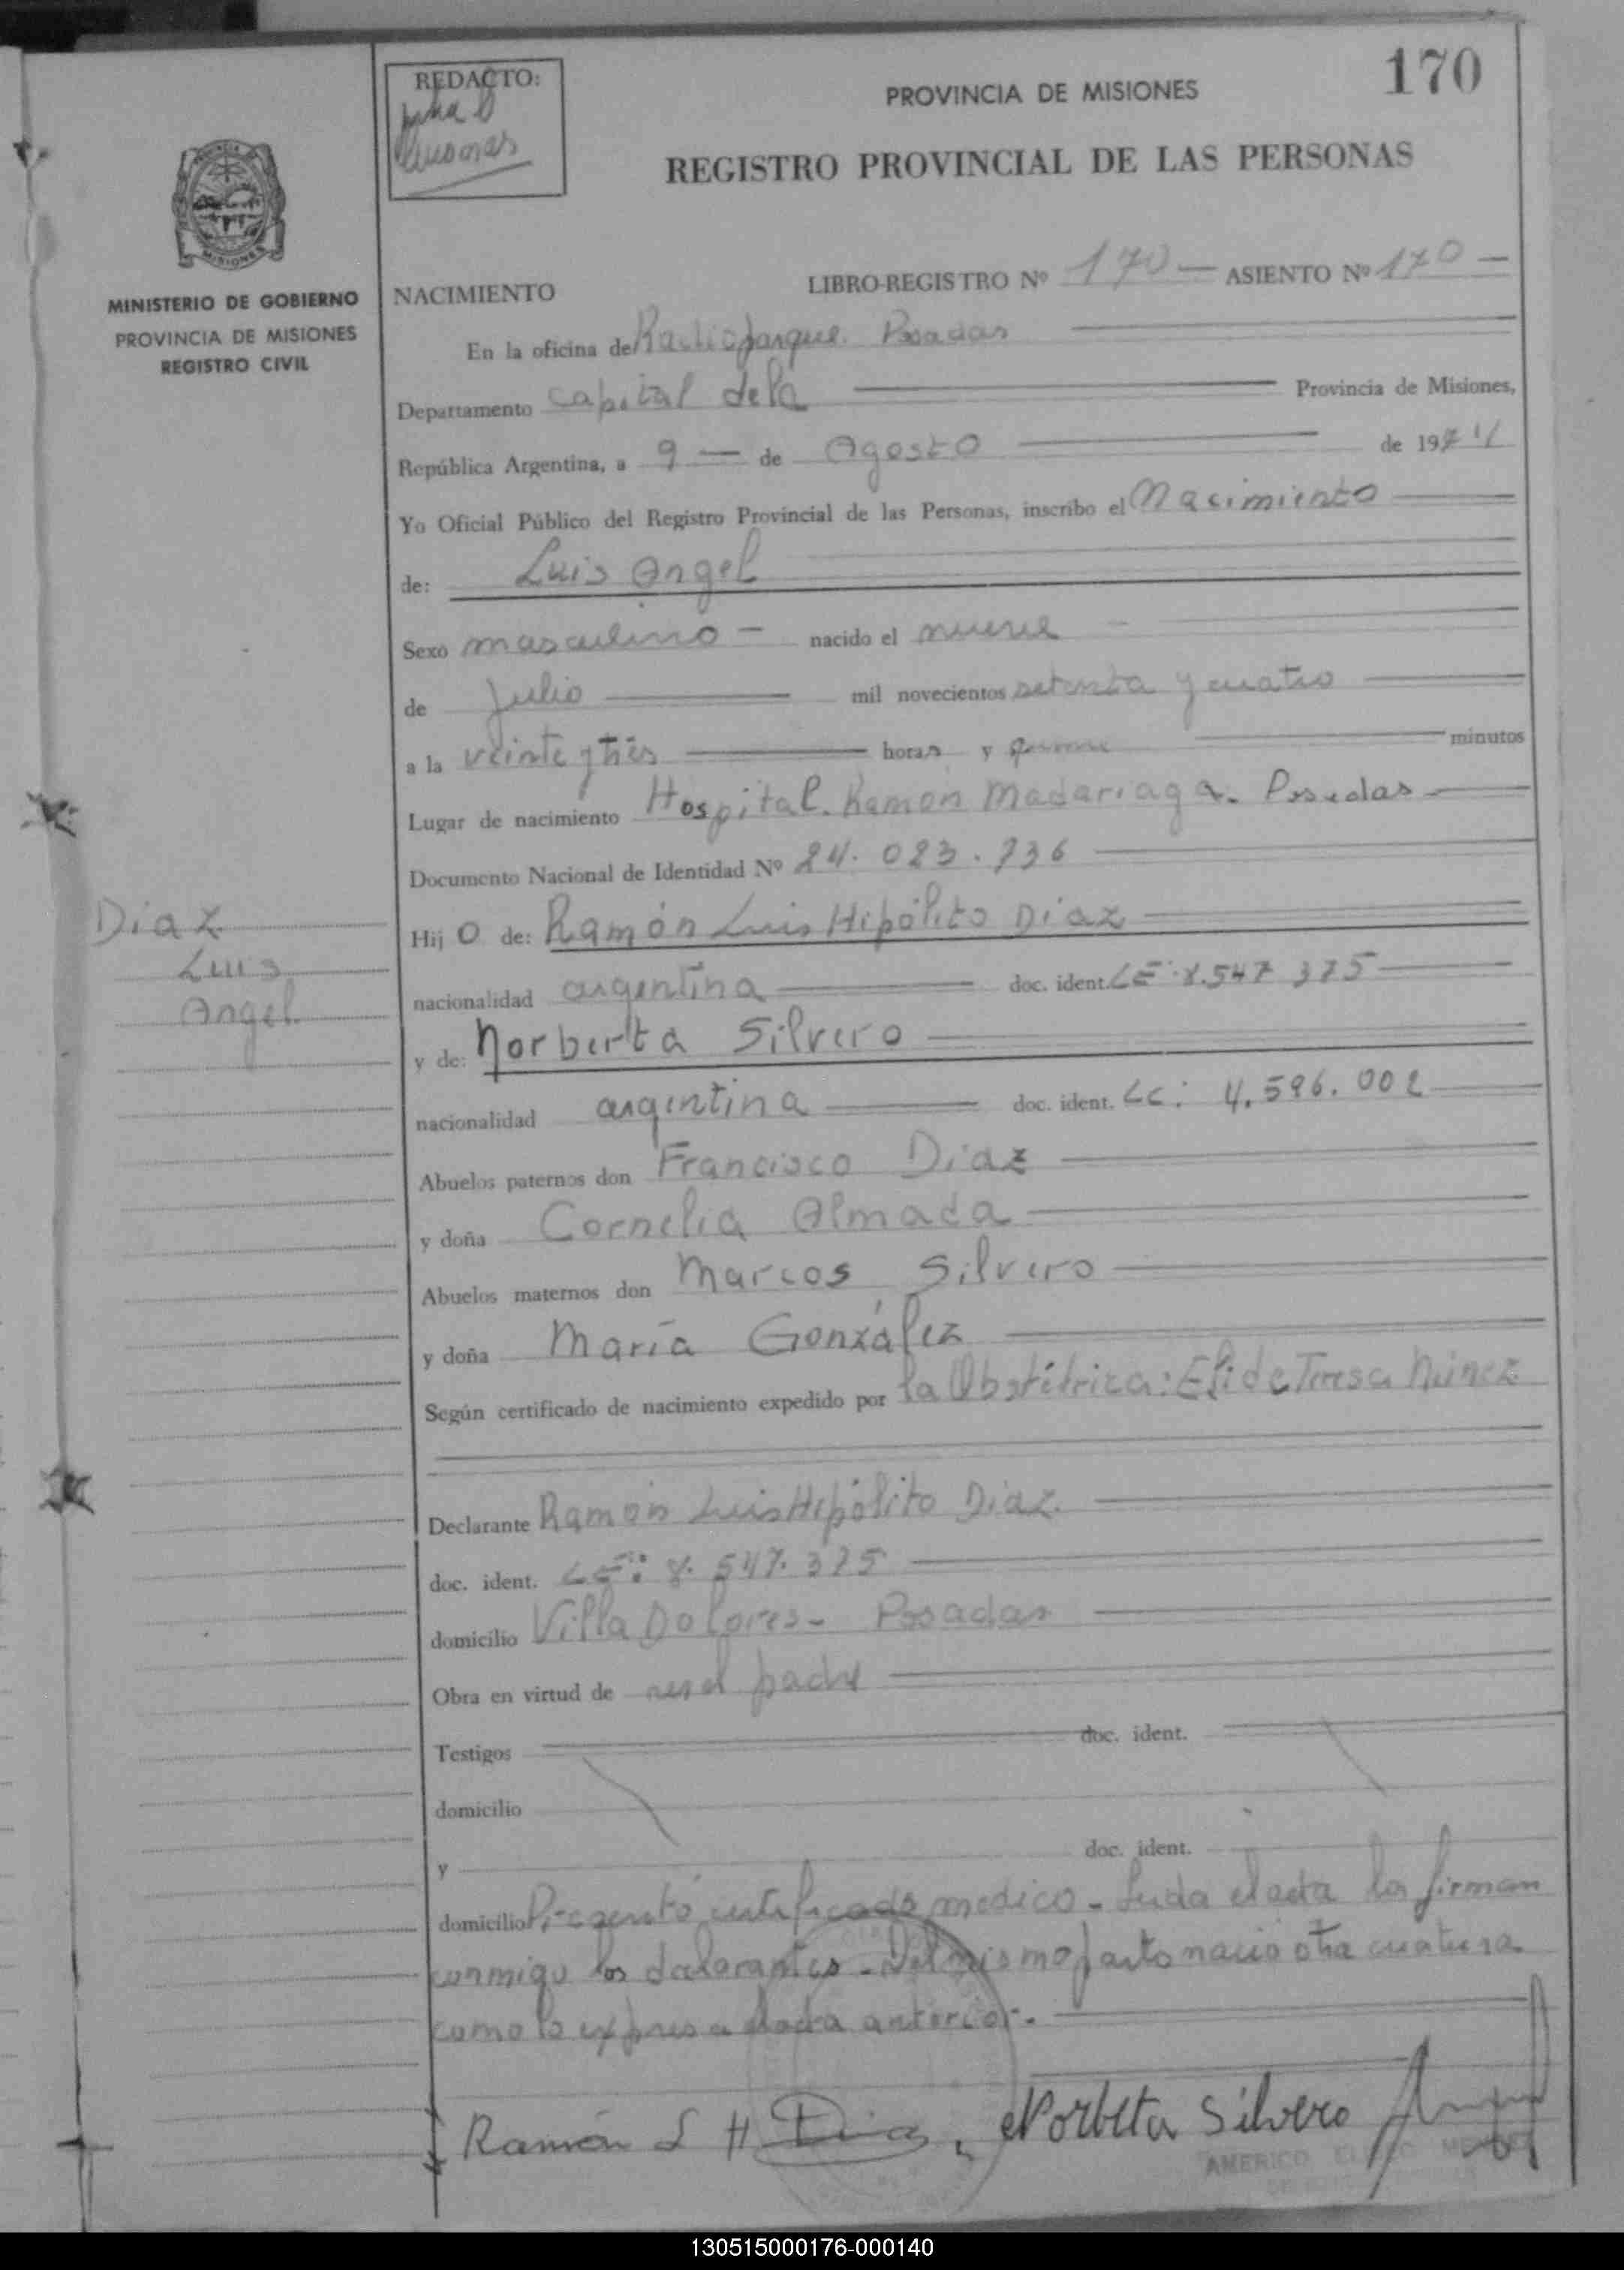 170
REDACTO:
PROVINCIA DE MISIONES
REGISTRO PROVINCIAL DE LAS PERSONAS
MISIONES
MINISTERIO DE GOBIERNO
PROVINCIA DE MISIONES
REGISTRO CIVIL
NACIMIENTO LIBRO-REGISTRO Nº 170 — ASIENTO Nº 170 —
En la oficina de Posadas
Departamento capital dela Provincia de Misiones,
República Argentina, a 9 — de Agosto de 1974
Yo Oficial Público del Registro Provincial de las Personas, inscribo el Nacimiento
de: Luis Angel
Sexo masculino — nacido el nueve
de Julio mil novecientos setenta y cuatro
a la veinte y tres horas y minutos
Lugar de nacimiento Hospital. Ramón Madariaga. Posadas
Documento Nacional de Identidad Nº 24.023.736
Díaz
Luis
Angel
Hij o de: Ramón Luis Hipólito Díaz
nacionalidad argentina doc. ident. LE: 8.547 375
y de: Norberta Silvero
nacionalidad argentina doc. ident. LC: 4.596.002
Abuelos paternos don Francisco Diaz
y doña Cornelia Almada
Abuelos maternos don Marcos Silvero
y doña María González
Según certificado de nacimiento expedido por la Obstétrica: Teresa Núnez
Declarante Ramón Luis Hipólito Díaz.
doc. ident. LE: 8.547.375
domicilio Villa Dolores - Posadas
Obra en virtud de ser el padre
Testigos doc. ident.
domicilio
y doc. ident.
domicilio Presentó certificado medico - Leida el acta la firman
conmigo los declarantes - Del mismo parto nació otra criatura
como lo expresa el acta anterior.
Ramón L H Diaz, Norbeta Silvero
AMERICO
130515000176-000140